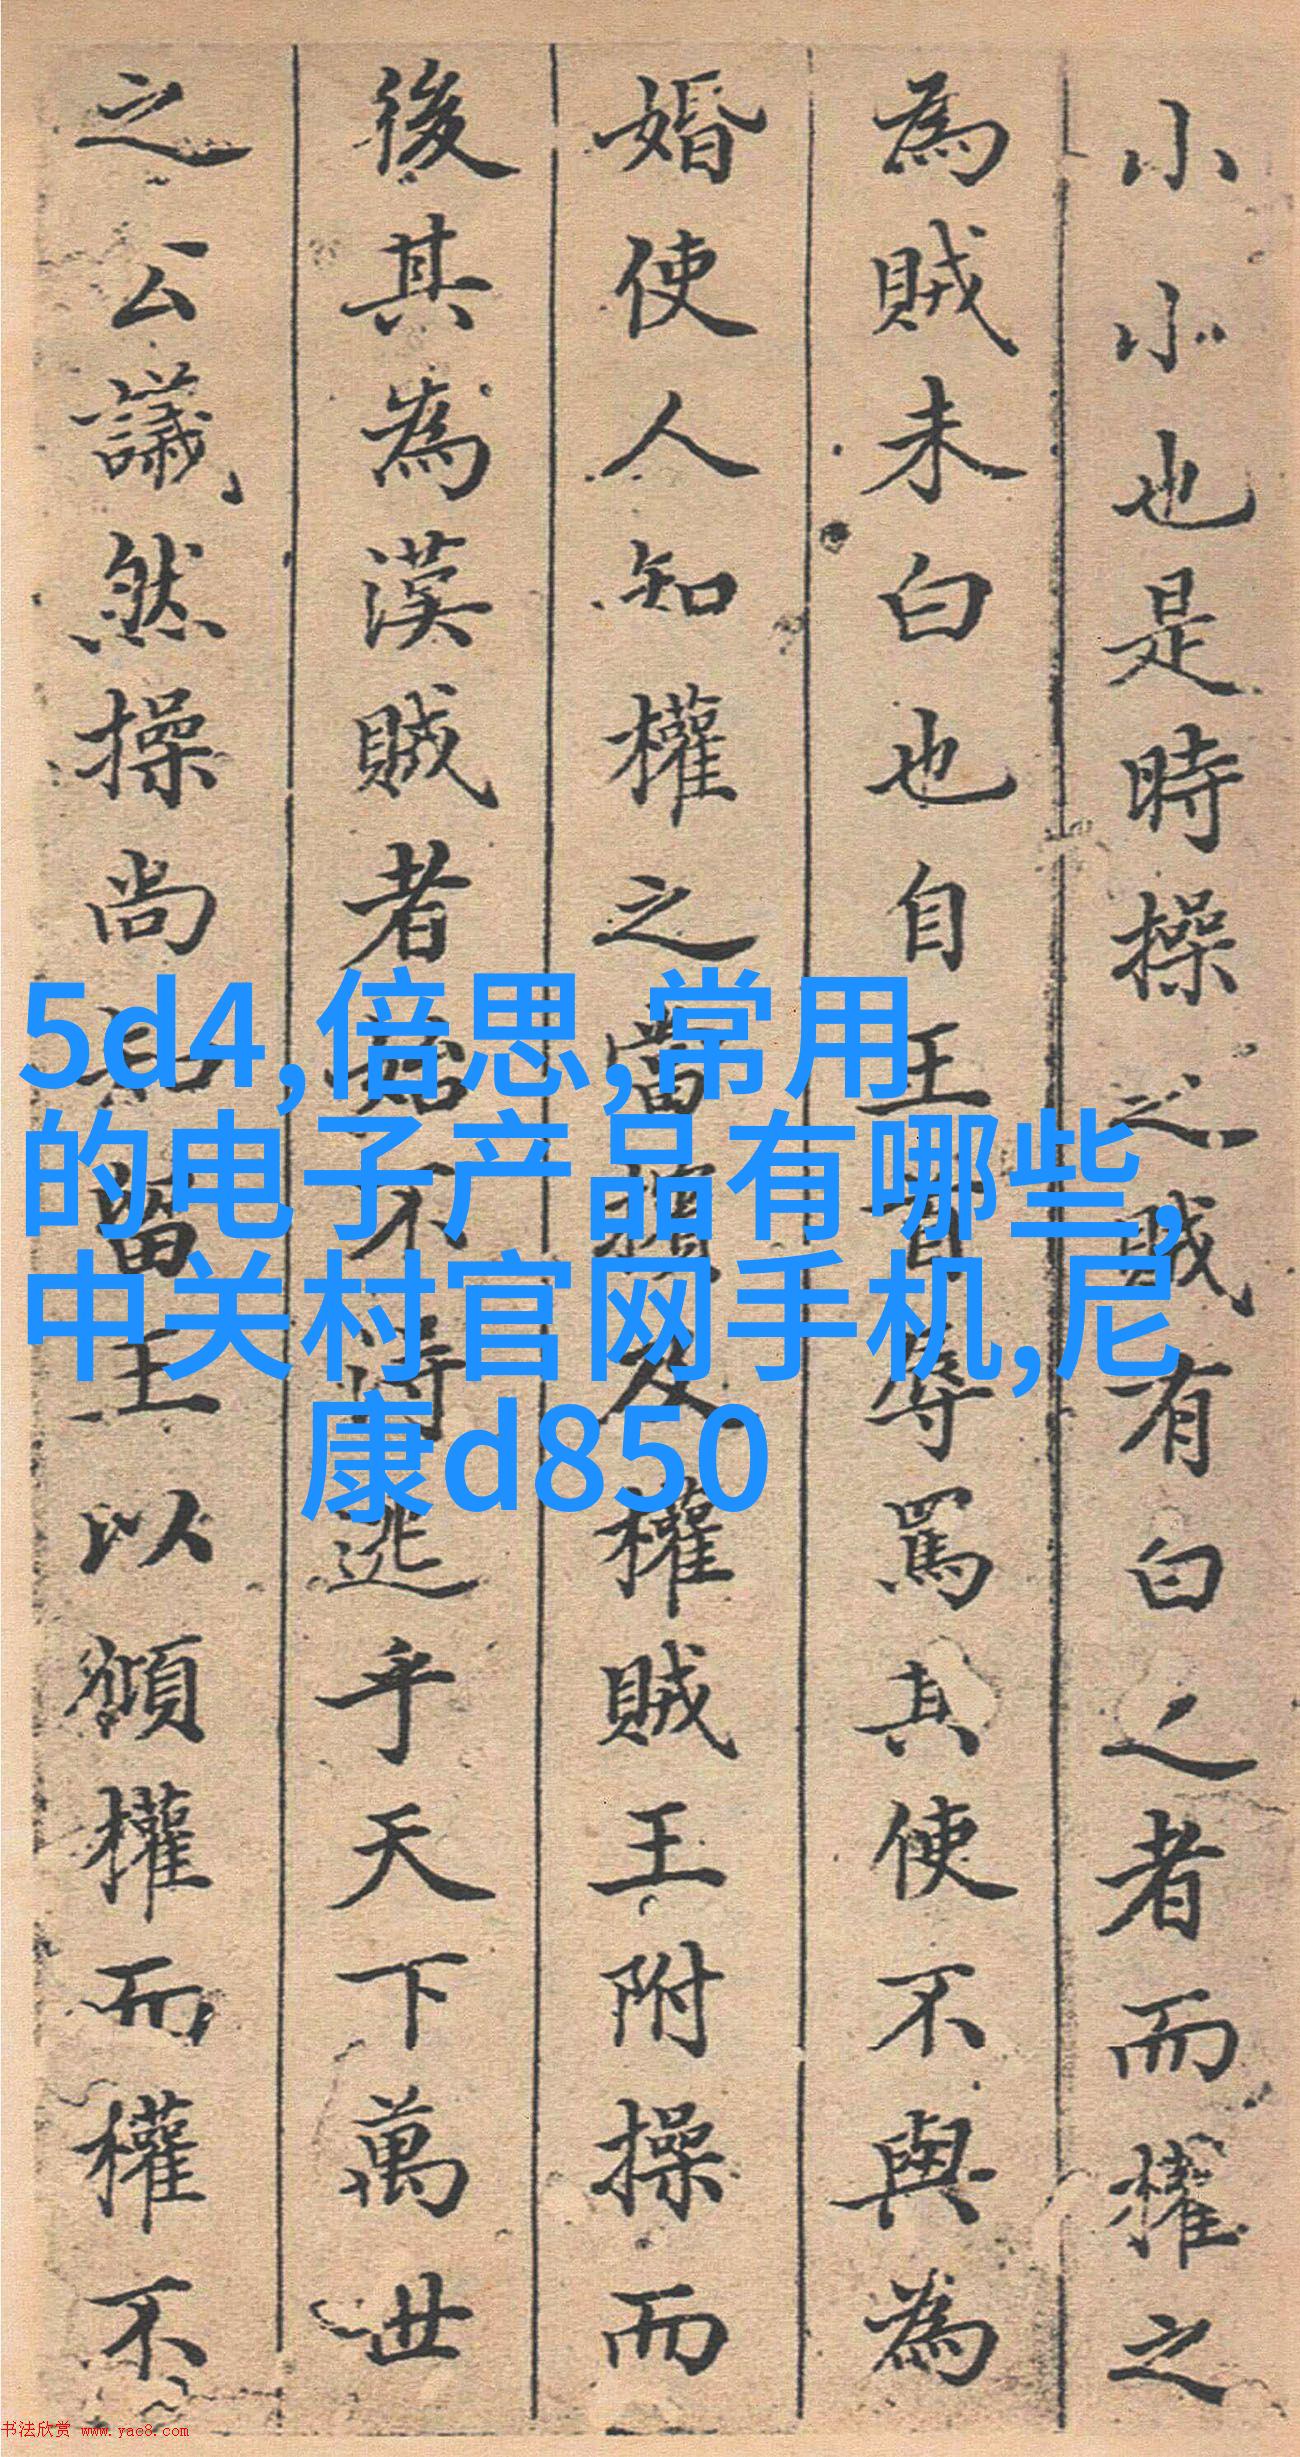 小小也是時操之賊有白之者而權之
為賊未白也自王者辱罵其使不與為
婚使人知權之當損及權賊王附操而
後其為漢賊者始不得逃乎天下萬世
之公議然操尚知畱王以頻權而權不
5d4,倍思,常用
的电子产品有哪些,
中关村官网手机,尼
康d850
书法欣赏 www.yac8.com